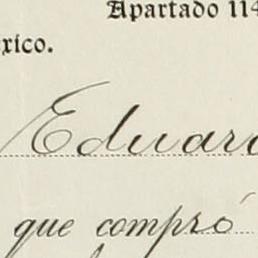 Apartado 114
xico.
Eduar
que compró